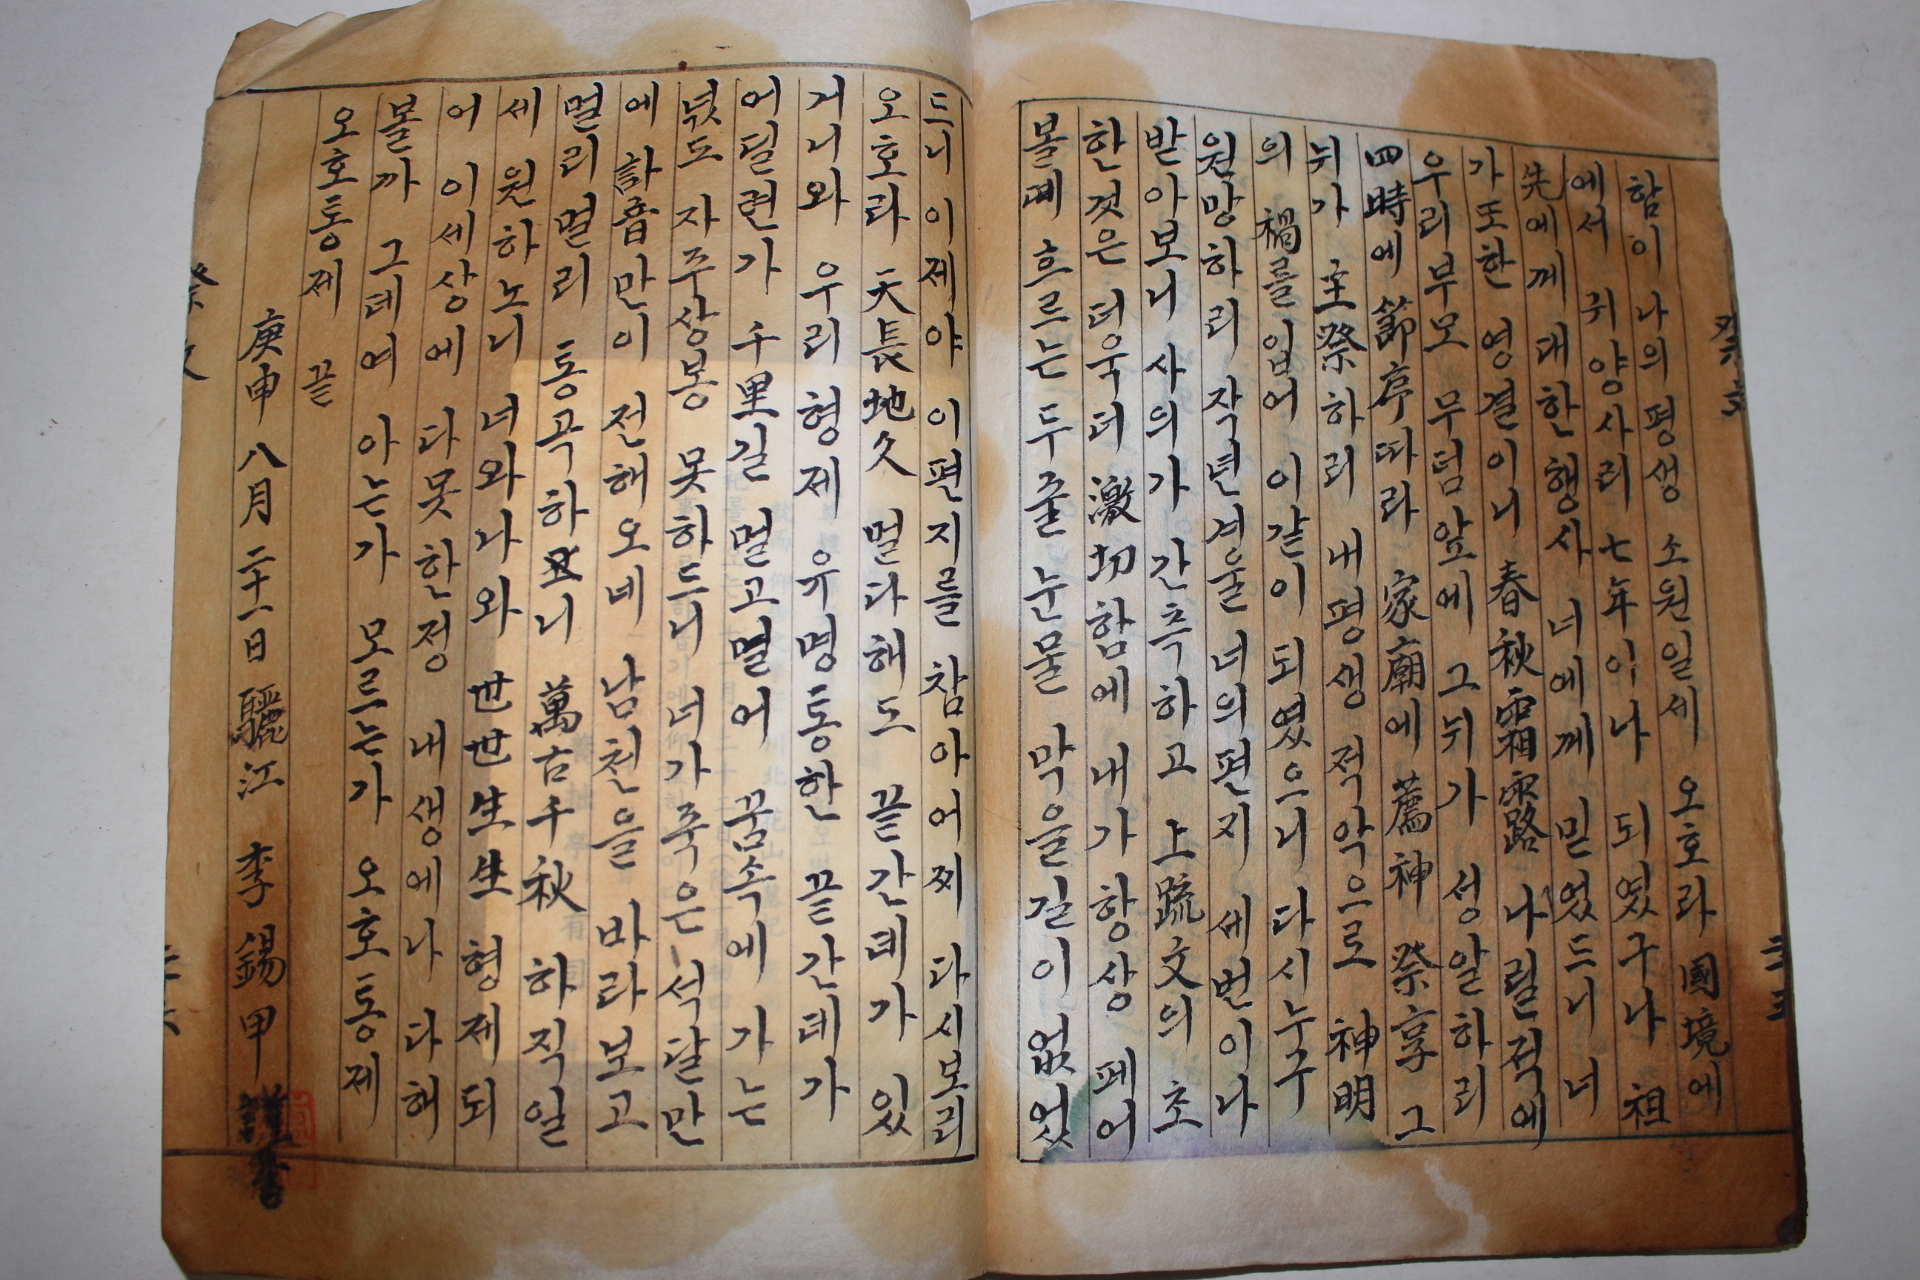 祭文
함이 나의 평생 소원일세 오호라 國境에
에서 귀양사리 七年이나 되였구나 祖
先에께 대한행사 너에께 믿었드니 너
가또한 영결이니 春秋霜露 나릴적에
우리부모 무덤앞에 그뉘가 성알하리
四時에 節序따라 家廟에 薦神 祭享 그
뉘가 主祭하리 내평생 적악으로 神明
의 禍를입어 이같이 되였으니 다시누구
원망하리 작년겨울 너의편지 세번이나
받아보니 사의가 간측하고 上疏文의 초
한것은 더욱더 激切함에 내가 항상 페어
볼때 흐르는 두줄 눈물 막을길이 없었
드니 이제야 이편지를 참아어찌 다시보리
오호라 天長地久 멀다해도 끝간데가 있
거니와 우리형제 유명통한 끝간데가
어딜런가 千里길 멀고멀어 꿈속에 가는
넋도 자주상봉 못하드니 너가죽은 석달만
에 訃音만이 전해오네 남천을 바라보고
멀리멀리 통곡하니 萬古千秋 하직일
세 원하노니 너와나와 世世生生 형제되
어 이세상에 다못한정 내생에나 다해
볼까 그데여 아는가 모르는가 오호통제
오호통제 끝
庚申八月二十一日 驪江 李錫甲 謹書
祭文